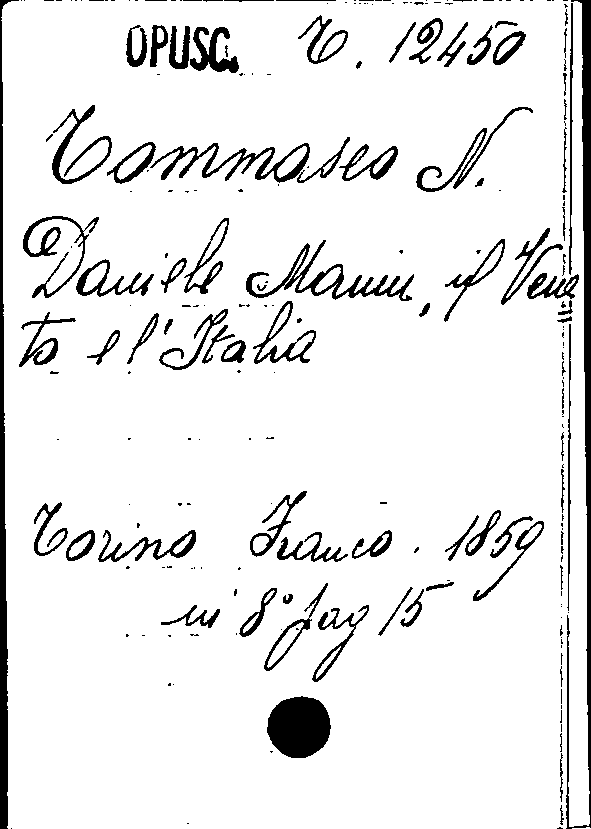 OPUSC. T. 12450
Tommaseo N.
Daniele Manin, il Vene=
to e l'Italia
Torino Franco. 1859
in 8° pag 15